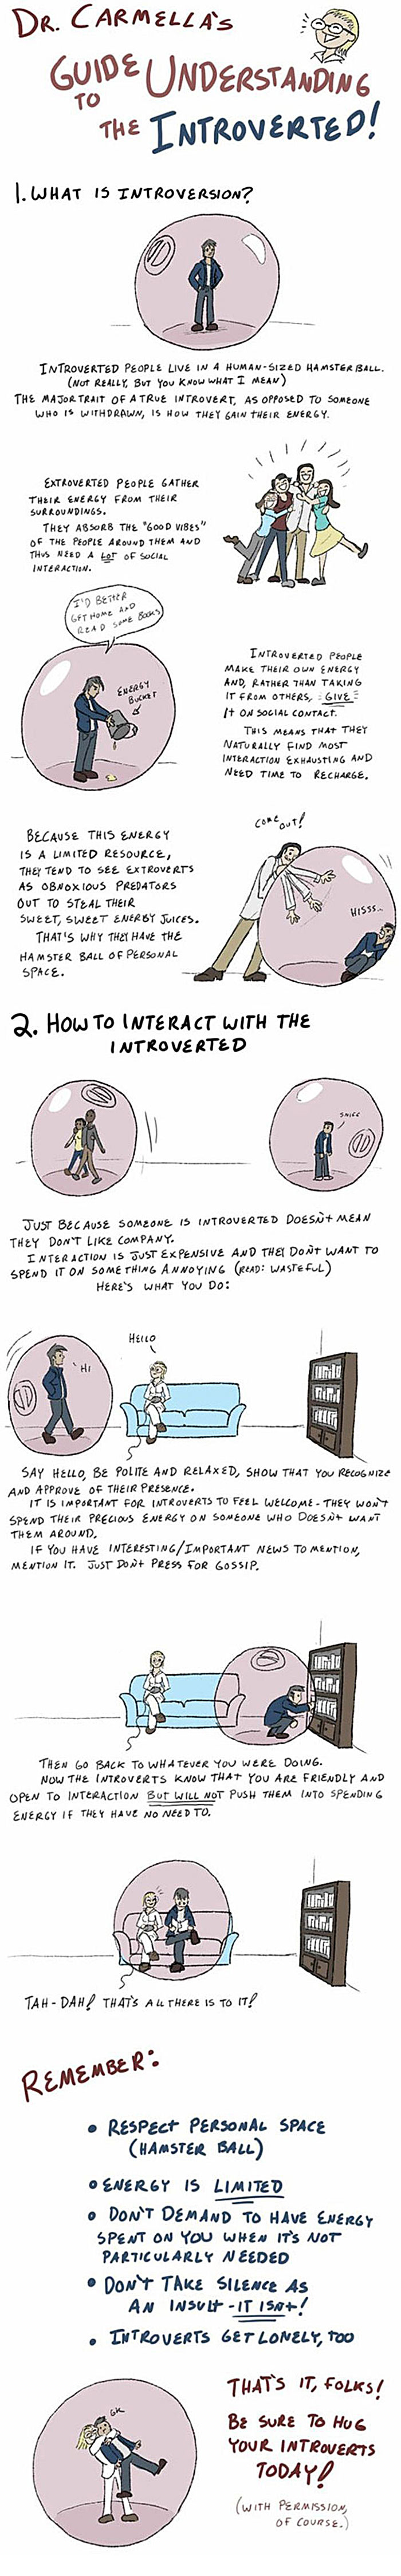 DR. CARMELLA'S
GUIDE
TO
UNDERSTANDING
THE INTROVERTED!
1. WHAT IS INTROVERSION?
INTROVERTED PEOPLE LIVE IN A HUMAN-SIZED HAMSTER BALL.
(NOT REALLY, BUT YOU KNOW WHAT I MEAN)
THE MAJOR TRAIT OF A TRUE INTROVERT, AS OPPOSED TO SOMEONE
WHO IS WITHDRAWN, IS HOW THEY GAIN THEIR ENERGY.
EXTROVERTED PEOPLE GATHER
THEIR ENERGY FROM THEIR
SURROUNDINGS.
THEY ABSORB THE "GOOD VIBES"
OF THE PEOPLE AROUND THEM AND
THUS NEED A LOT OF SOCIAL
INTERACTION.
I'D BETTER
GET HOME AND
READ SOME BOOKS
ENERGY
BUCKET
INTROVERTED PEOPLE
MAKE THEIR OWN ENERGY
AND, RATHER THAN TAKING
IT FROM OTHERS, GIVE
IT ON SOCIAL CONTACT.
THIS MEANS THAT THEY
NATURALLY FIND MOST
INTERACTION EXHAUSTING AND
NEED TIME TO RECHARGE.
BECAUSE THIS ENERGY
IS A LIMITED RESOURCE,
THEY TEND TO SEE EXTROVERTS
AS OBNOXIOUS PREDATORS
OUT TO STEAL THEIR
SWEET, SWEET ENERGY JUICES.
THAT'S WHY THEY HAVE THE
HAMSTER BALL OF PERSONAL
SPACE.
COME OUT!
HISSS..
2. HOW TO INTERACT WITH THE
INTROVERTED
SNIFF
JUST BECAUSE SOMEONE IS INTROVERTED DOESN'T MEAN
THEY DON'T LIKE COMPANY.
INTERACTION IS JUST EXPENSIVE AND THEY DON'T WANT TO
SPEND IT ON SOMETHING ANNOYING (READ: WASTEFUL)
HERE'S WHAT YOU DO:
HELLO
HI
SAY HELLO, BE POLITE AND RELAXED, SHOW THAT YOU RECOGNIZE
AND APPROVE OF THEIR PRESENCE.
IT IS IMPORTANT FOR INTROVERTS TO FEEL WELCOME - THEY WON'T
SPEND THEIR PRECIOUS ENERGY ON SOMEONE WHO DOESN'T WANT
THEM AROUND.
IF YOU HAVE INTERESTING/IMPORTANT NEWS TO MENTION,
MENTION IT. JUST DON'T PRESS FOR GOSSIP.
THEN GO BACK TO WHATEVER YOU WERE DOING.
NOW THE INTROVERTS KNOW THAT YOU ARE FRIENDLY AND
OPEN TO INTERACTION BUT WILL NOT PUSH THEM INTO SPENDING
ENERGY IF THEY HAVE NO NEED TO.
TAH-DAH! THAT'S ALL THERE IS TO IT!
REMEMBER:
• RESPECT PERSONAL SPACE
(HAMSTER BALL)
• ENERGY IS LIMITED
• DON'T DEMAND TO HAVE ENERGY
SPENT ON YOU WHEN IT'S NOT
PARTICULARLY NEEDED
• DON'T TAKE SILENCE AS
AN INSULT - IT ISN'T!
• INTROVERTS GET LONELY, TOO
GK
THAT'S IT, FOLKS!
BE SURE TO HUG
YOUR INTROVERTS
TODAY!
(WITH PERMISSION,
OF COURSE.)